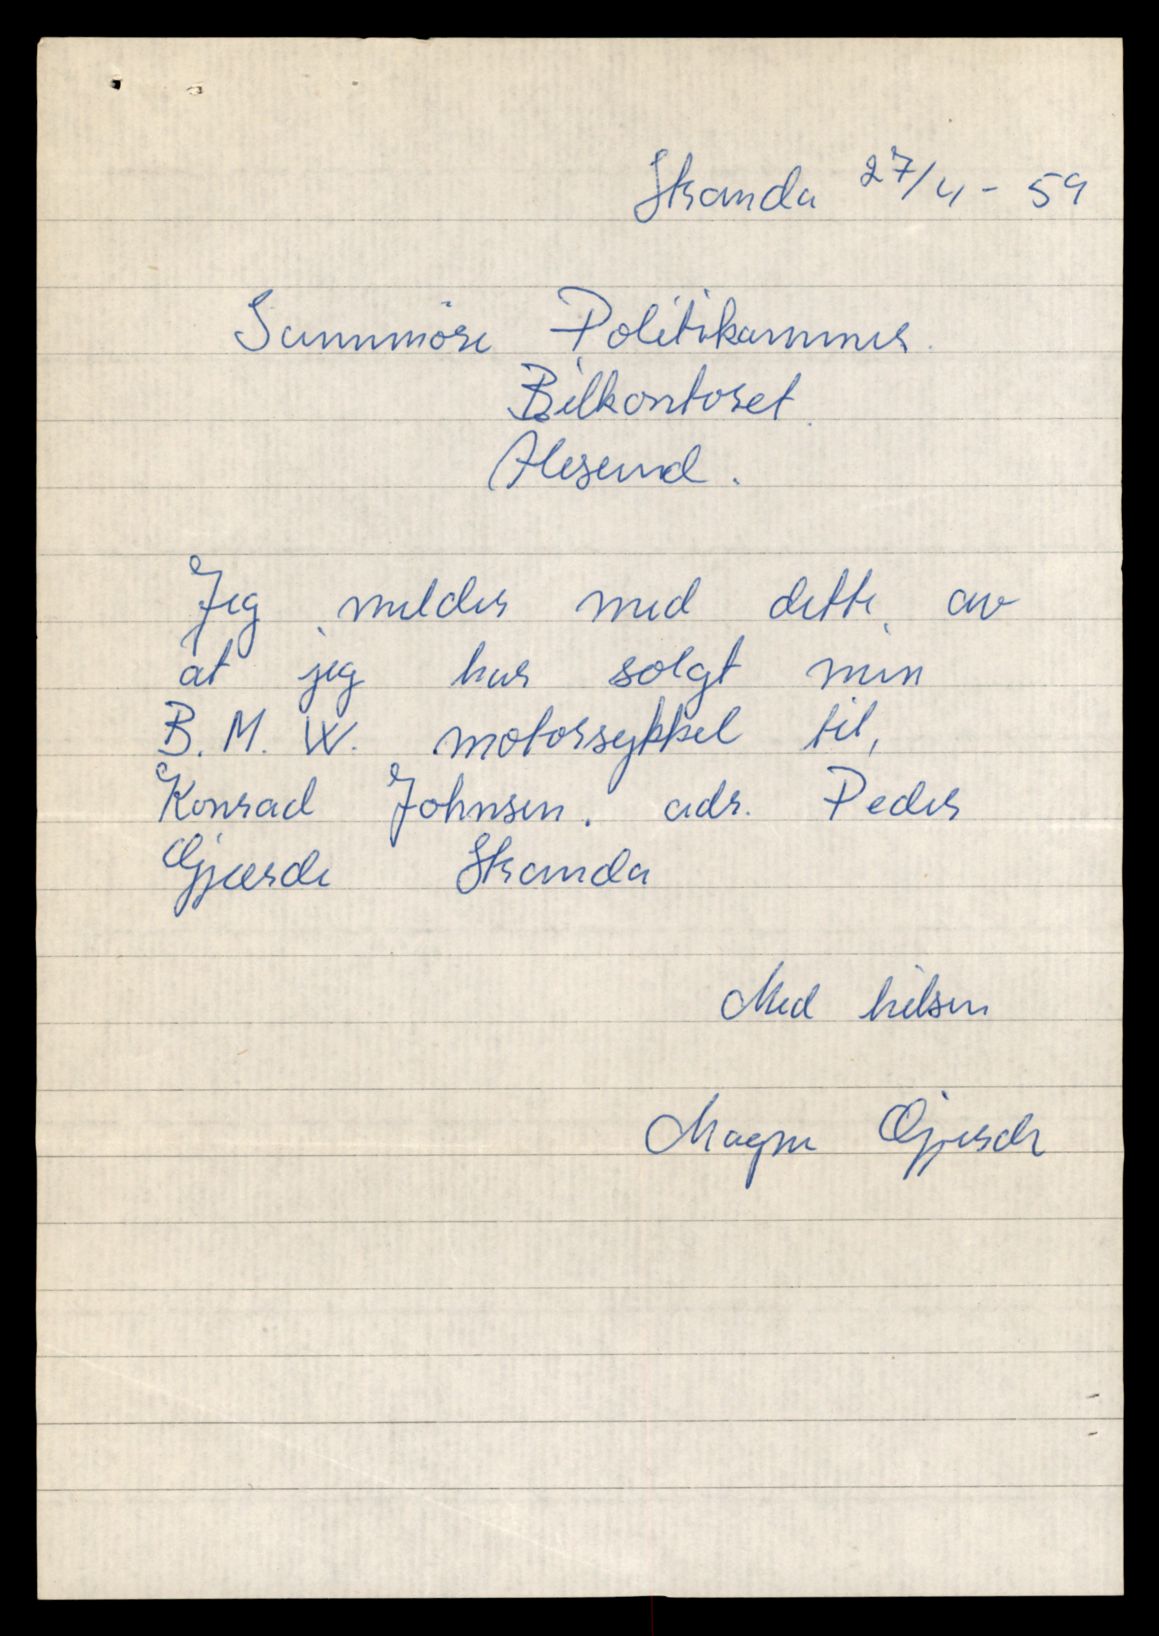 Stranda 27/4 - 59
Sunnmöre Politikammer.
Bilkontoret
Alesund.
Jeg melder med dette av
at jeg har solgt min
B. M. W. motorsykkel til,
Konrad Johnsen. adr. Peder
Gjærde Stranda
Med hilsen
Magne Gjerde